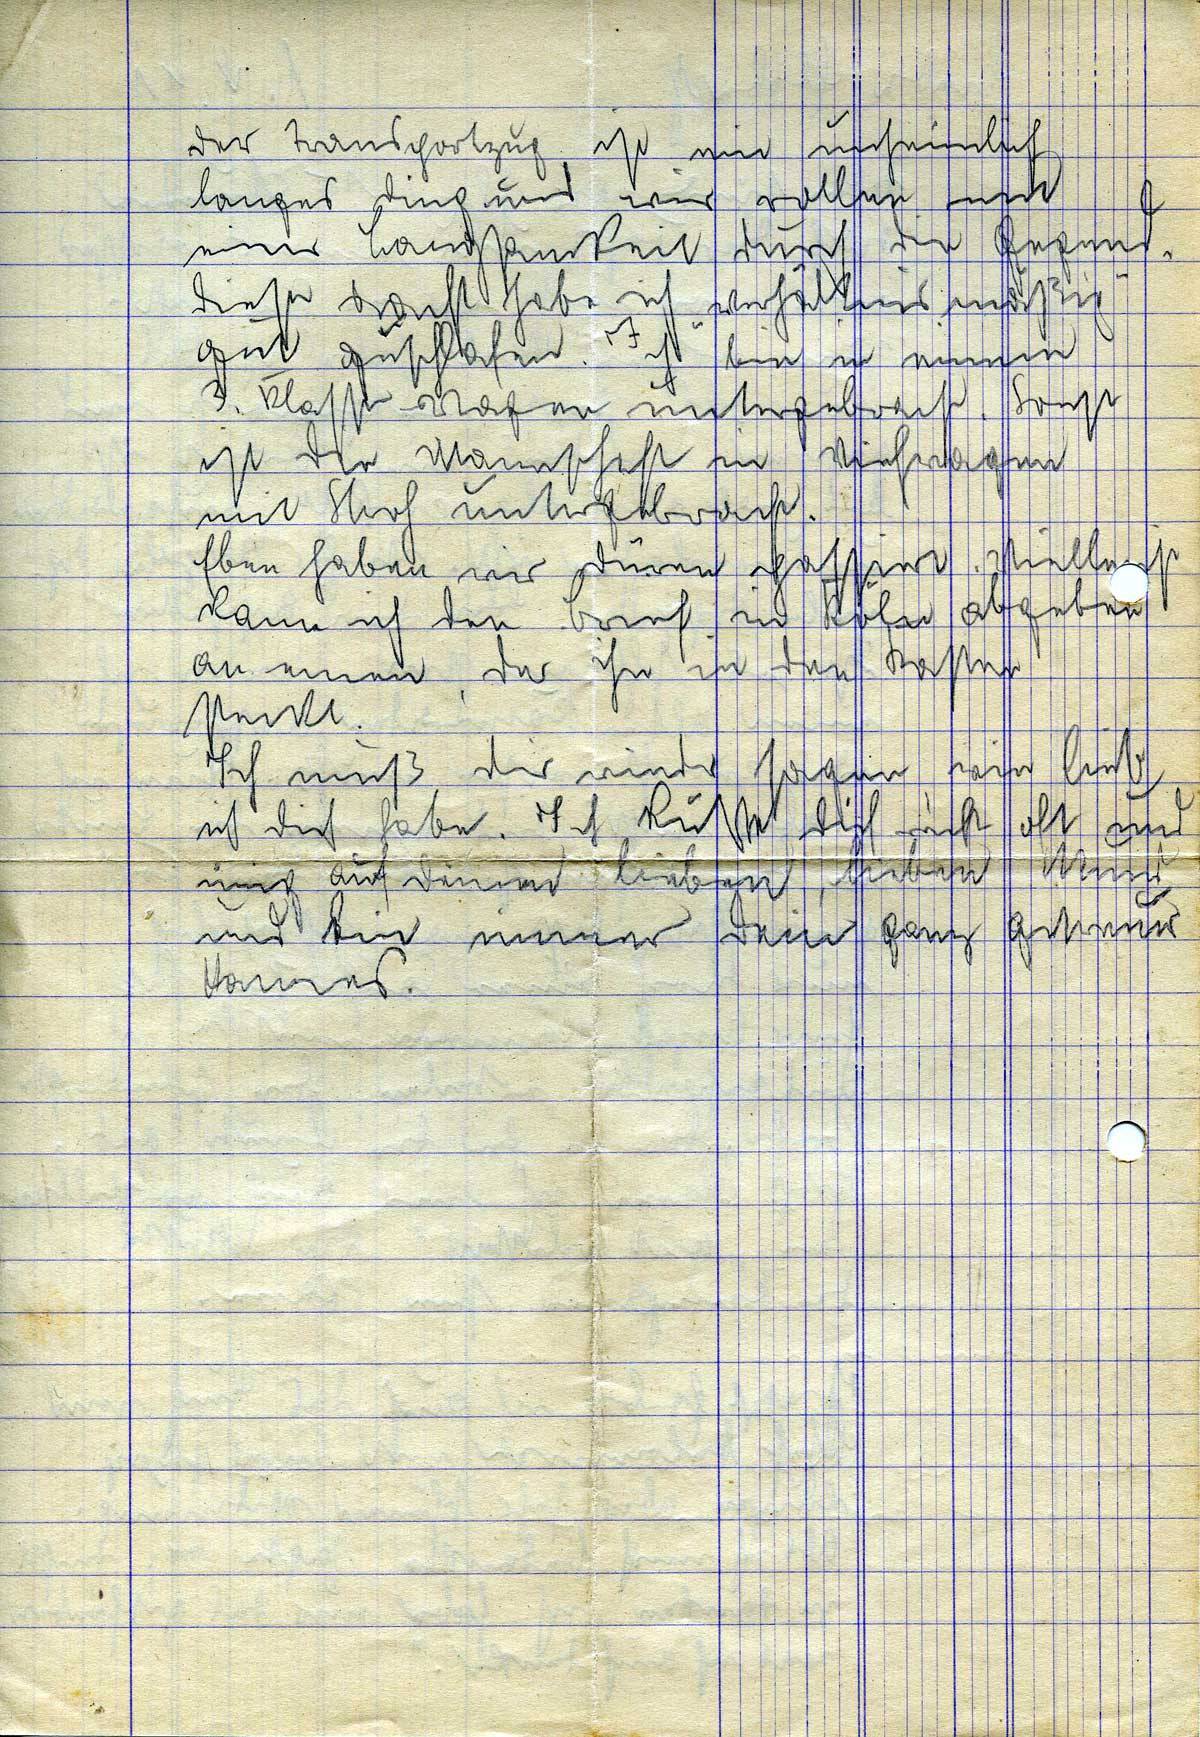 Der Transportzug ist ein unheimlich
langes Ding und wir rollen mit
einer Langsamkeit durch die Gegend.
Diese Nacht habe ich "verhältnismäßig"
gut geschlafen. Ich bin in einem
3. Klasse Wagen untergebracht. Sonst
ist die Mannschaft in Viehwagen
mit Stroh untergebracht.
Eben haben wir Düren passiert. Vielleicht
kann ich den Brief in Köln abgeben
an einen, der ihn in den Kasten
steckt.
Ich muß dir wieder sagen wie lieb
ich dich habe. Ich küsse dich recht oft und
innig auf deinen lieben, lieben Mund
und bin immer dein ganz getreuer
Hannes.